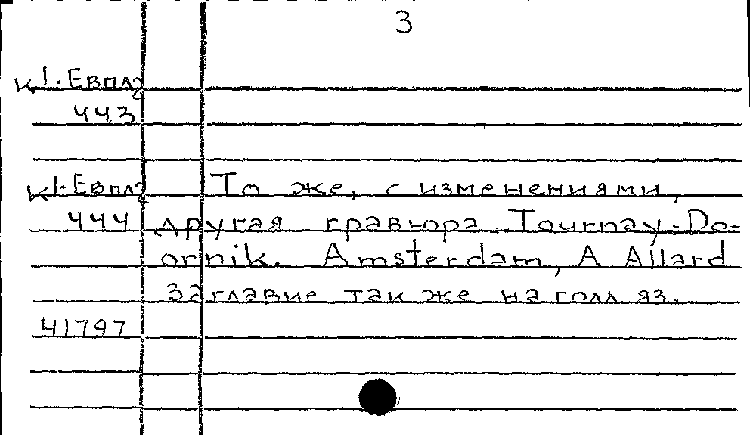 3
К 1-Евпл2
443
К 1-Евпл2 То же, с изменениями,
444 другая гравюра. Tournay-Do-
ornik. Amsterdam, A Allard
Заглавие также на голл яз.
41797